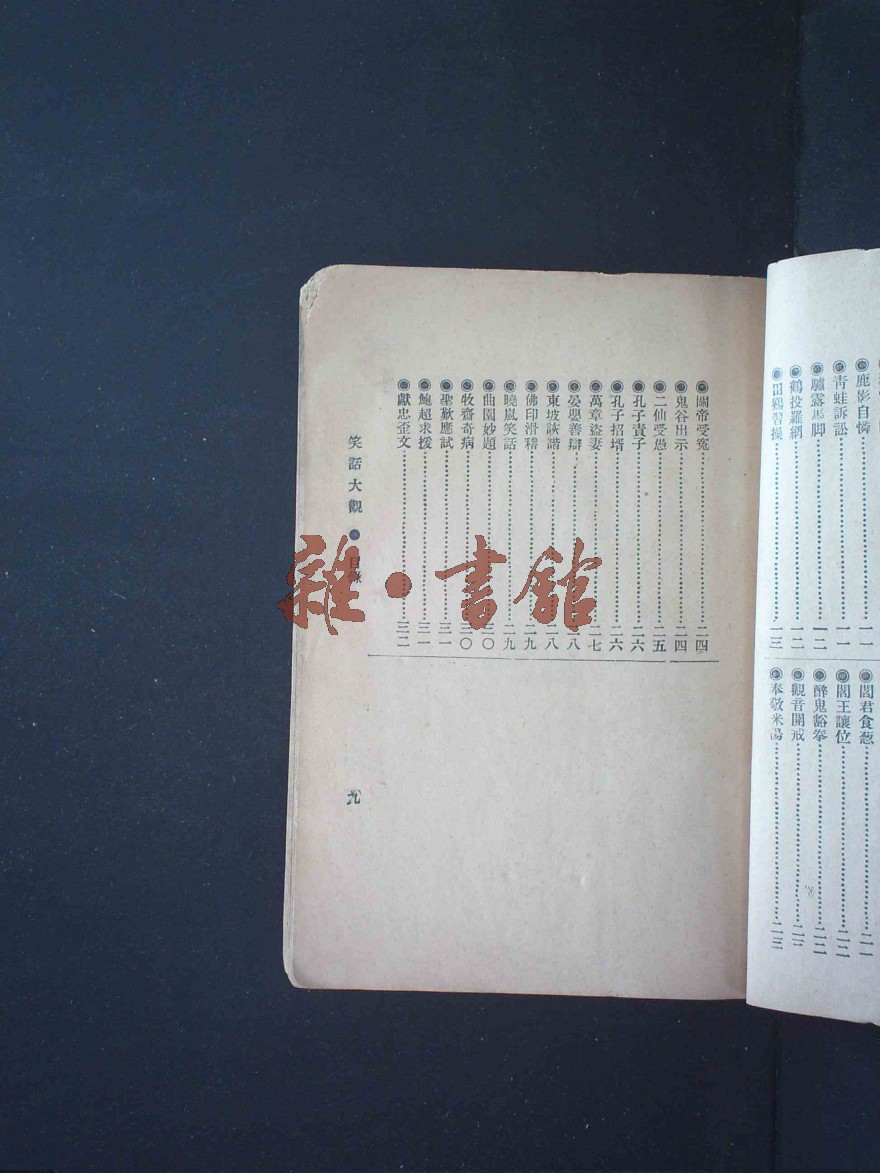 鹿影自憐……一一
青蛙訴訟……一一
驢露馬脚……一二
鶴投羅網……一二
田鷄習操……一三
閻君食葱……二一
閻王讓位……二二
醉鬼豁拳……二二
觀音開戒……二三
奉敬米湯……二三
關帝受冤……二四
鬼谷出示……二四
二仙受愚……二五
孔子責子……二六
孔子招壻……二六
萬章盜妻……二七
晏嬰善辯……二八
東坡詼諧……二八
佛印滑稽……二九
曉嵐笑話……二九
曲園妙題……三〇
牧齋奇病……三〇
聖歎應試……三一
鮑超求援……三一
獻忠歪文……三二
笑話大觀 目錄 九
雜·書館